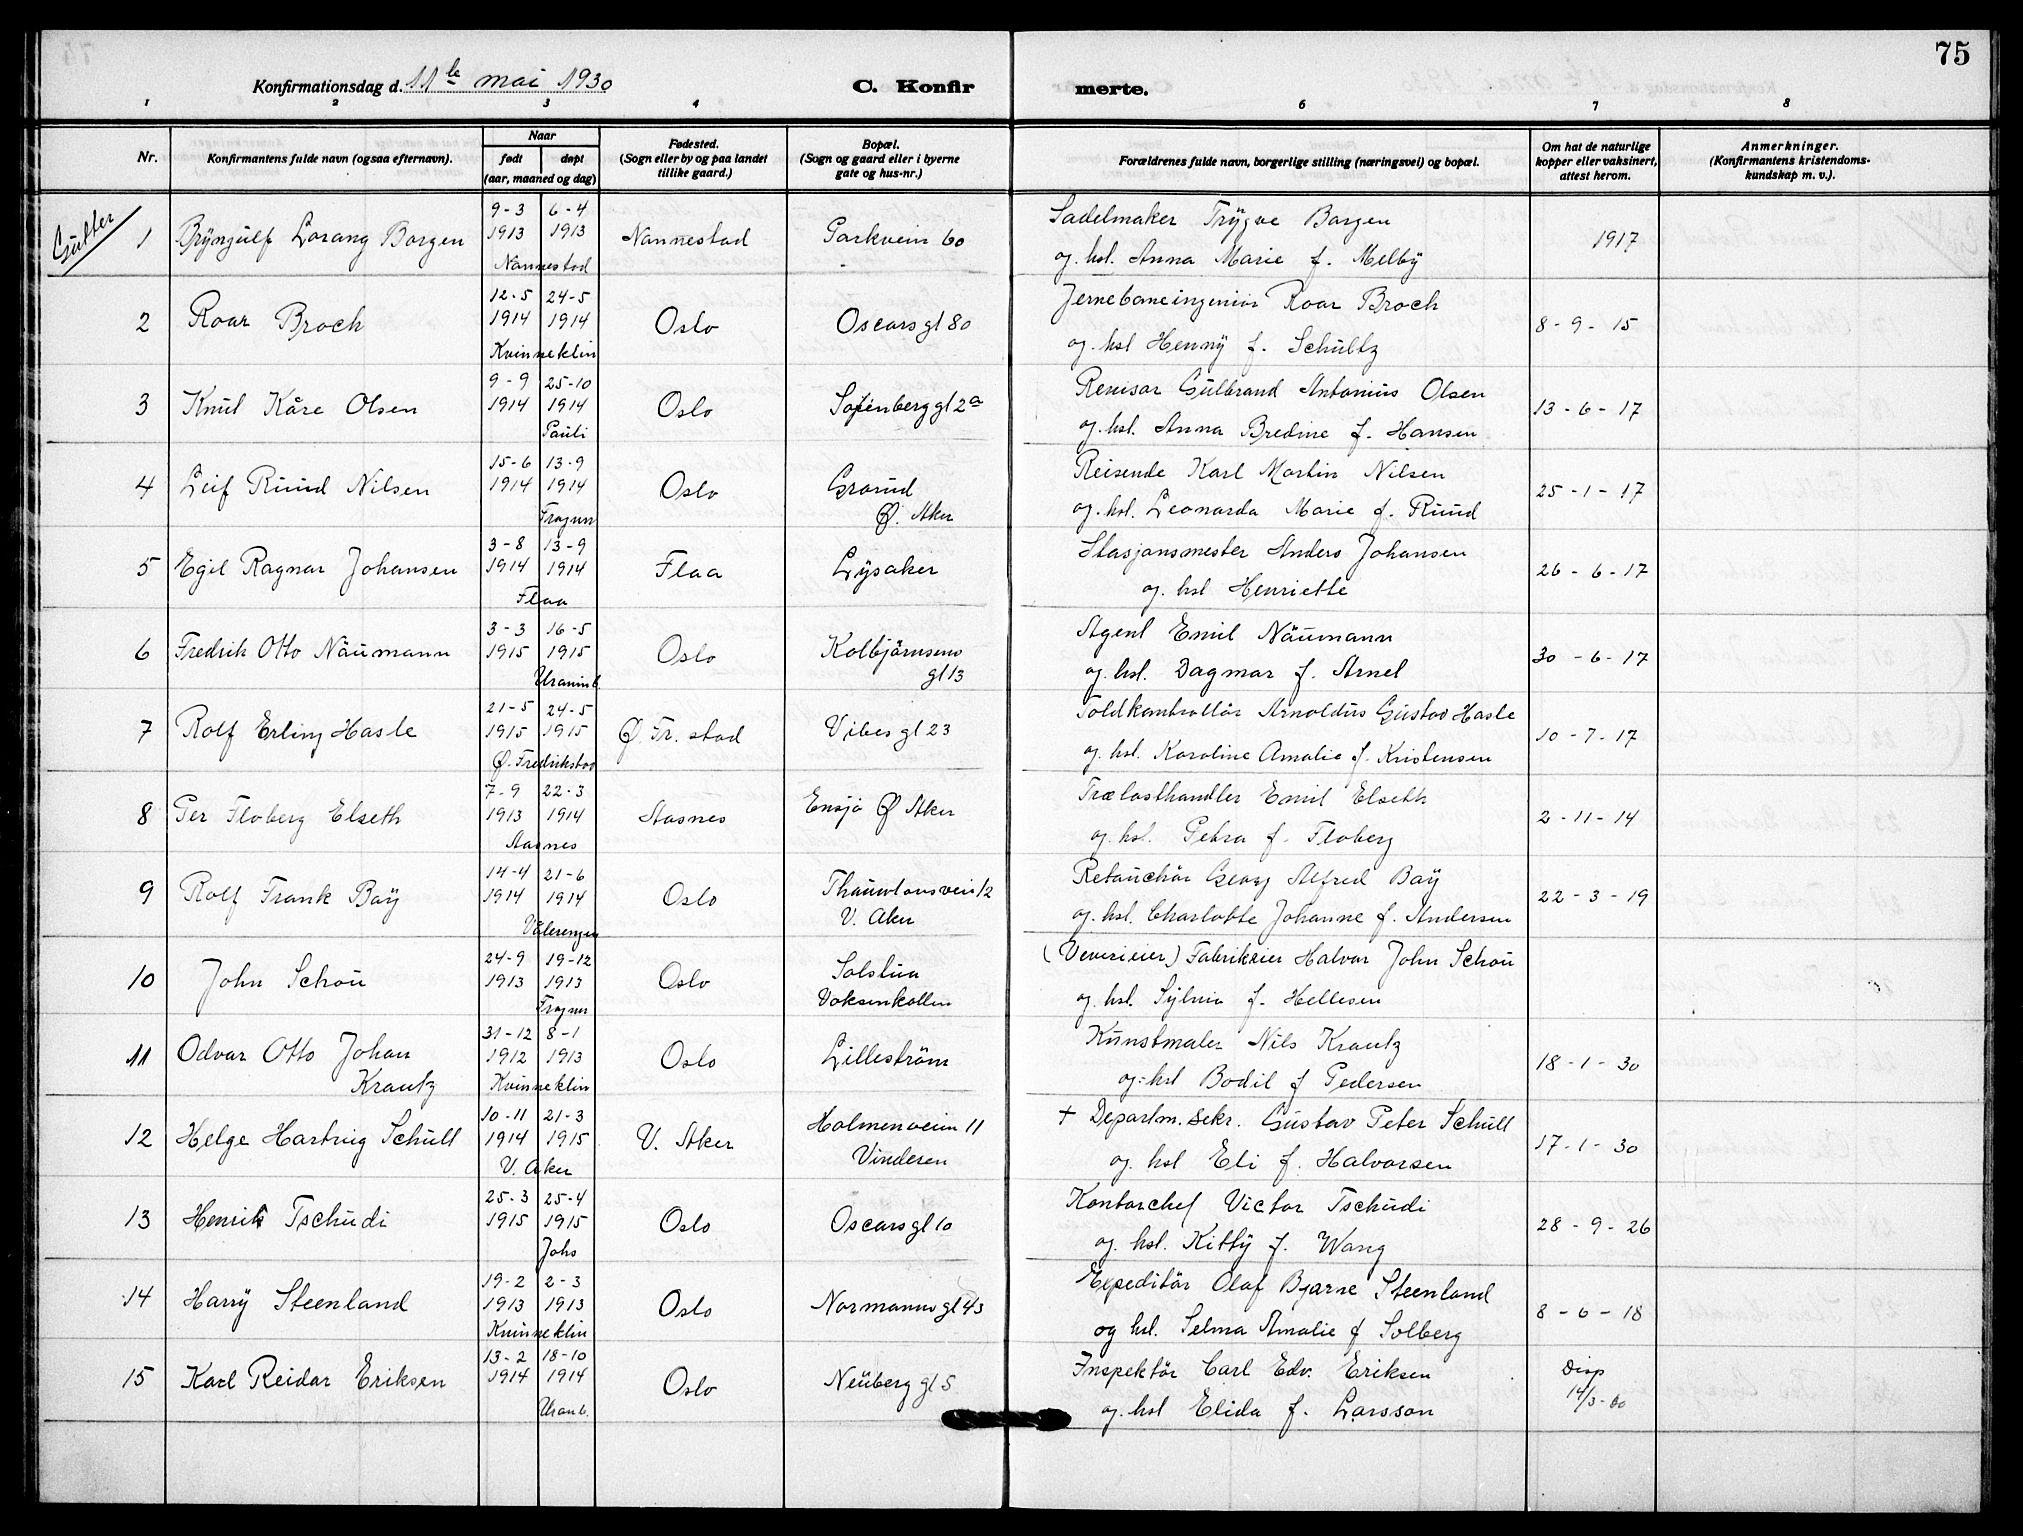 75
Konfirmationsdag d. 11te mai 1930
C. Konfir
merte.
1 2 3 4 6 7 8
Nr.
Konfirmantens fulde navn (ogsaa efternavn).
Naar
født døpt
(aar, maaned og dag)
Fødested.
(Sogn eller by og paa landet
tillike gaard.)
Bopæl.
(Sogn og gaard eller i byerne
gate og hus-nr.)
Forældrenes fulde navn, borgerlige stilling (næringsvei) og bopæl.
Om hat de naturlige
kopper eller vaksinert,
attest herom.
Anmerkninger.
(Konfirmantens kristendoms-
kundskap m. v.).
Gutter
1 Brynjulf Lorang Borgen 9-3 1913 6-4 1913 Nannestad Nannestad Parkvein 60 Sadelmaker Trygve Borgen
og hst. Anna Marie f. Melby 1917
2 Roar Broch 12-5 1914 24-5 1914 Kvinneklin Oslo Oscarsgt 80 Jernebaneingeniör Roar Broch
og hst Henny f. Schultz 8-9-15
3 Knut Kåre Olsen 9-9 1914 25-10 1914 Pauli Oslo Sofienberggt 2a Revisor Gulbrand Antonius Olsen
og hst. Anna Bredine f. Hansen 13-6-17
4 Leif Ruud Nilsen 15-6 1914 13-9 1914 Frogner Oslo Grorud
Ø. Aker Reisende Karl Martin Nilsen
og hst. Leonarda Marie f. Ruud 25-1-17
5 Egil Ragnar Johansen 3-8 1914 13-9 1914 Flaa Flaa Lysaker Stasjonsmester Anders Johansen
og hst Henriette 26-6-17
6 Fredrik Otto Naumann 3-3 1915 16-5 1915 Uranienb. Oslo Kolbjörnsens
gt 13 Agent Emil Naumann
og hst. Dagmar f. Arnel 30-6-17
7 Rolf Erling Hasle 21-5 1915 24-5 1915 Ø. Fredrikstad Ø. Fr. stad Vibesgt 23 Toldkontrollör Arnoldus Gustav Hasle
og hst. Karoline Amalie f. Kristensen 10-7-17
8 Per Floberg Elseth 7-9 1913 22-3 1914 Aasnes Aasnes Ensjö Ø Aker Trælasthandler Emil Elseth
og hst. Petra f. Floberg 2-11-14
9 Rolf Frank Bay 14-4 1914 21-6 1914 Vålerengen Oslo Thaulowsvein 12
V. Aker Retouchör Georg Alfred Bay
og hst. Charlotte Johanne f. Andersen 22-3-19
10 John Schou 24-9 1913 19-12 1913 Frogner Oslo Solstua
Voksenkollen (Veverieier) Fabrikeier Halvor John Schou
og hst. Sylvia f. Hellesen
11 Odvar Otto Johan
Krantz 31-12 1912 8-1 1913 Kvinneklin Oslo Lilleström Kunstmaler Nils Krantz
og hst Bodil f Pedersen 18-1-30
12 Helge Hartvig Schult 10-11 1914 21-3 1915 V. Aker V. Aker Holmenveien 11
Vinderen + Departm. Sekr. Gustav Peter Schult
og hst Eli f. Halvorsen 17-1-30
13 Henrik Tschudi 25-3 1915 25-4 1915 Johs Oslo Oscarsgt 10 Kontorchef Victor Tschudi
og hst. Kitty f. Wang 28-9-26
14 Harry Steenland 19-2 1913 2-3 1913 Kvinneklin Oslo Normannsgt 43 Expeditör Olaf Bjarne Steenland
og hst. Selma Amalie f Solberg 8-6-18
15 Karl Reidar Eriksen 13-2 1914 18-10 1914 Uranb. Oslo Neuberggt 5 Inspektör Carl Edv. Eriksen
og hst Elida f. Larsson Disp
14/3-30